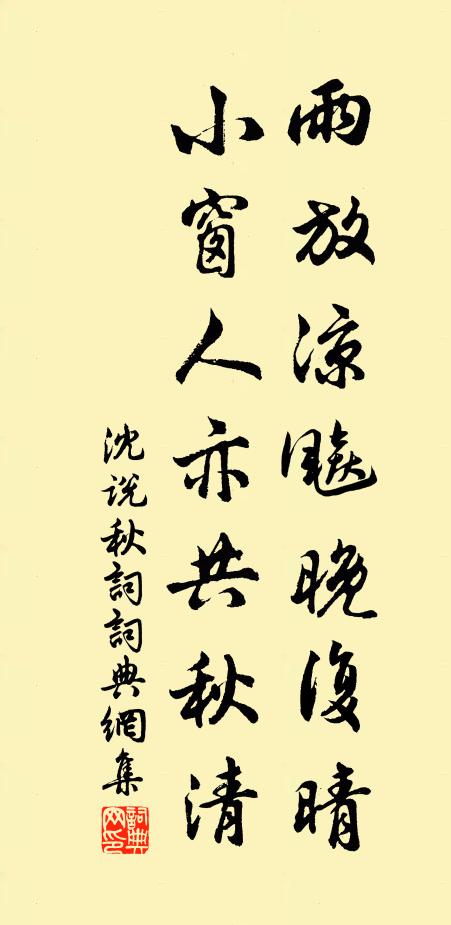 雨放涼飈晚復晴
小窗人亦共秋清
沈説秋詞詞典網集
詞典網印